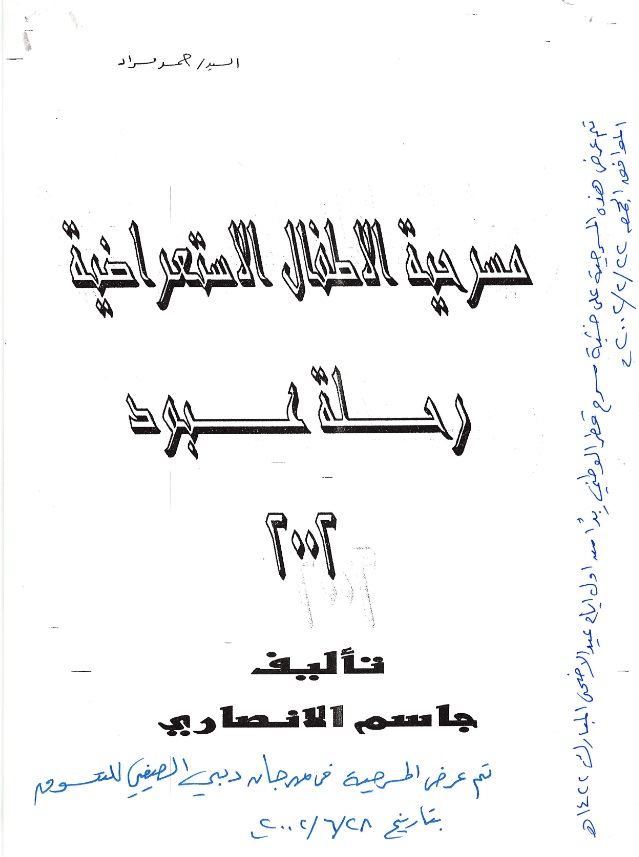 السيد/ حمد مراد
مسرحية الاطفال الاستعراضية
رحلة عبود
٢٠٠٢
تأليف
جاسم الانصاري
تم عرض المسرحية في مهرجان دبي الصيفي للتسوق
بتاريخ ٢٨/٦/٢٠٠٢
تم عرض هذه المسرحية على خشبة مسرح قطر الوطني بدأ من اول ايام عيد الاضحى المبارك ١٤٢٢هـ
الموافق الجمعة ٢٢/٢/٢٠٠٢